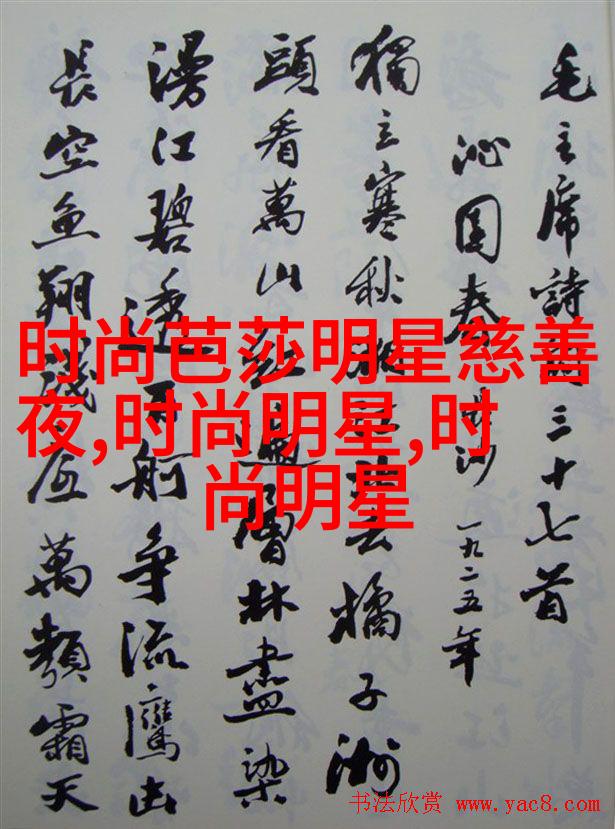 毛主席詩詞三十七首
沁園春 長沙 一九二五年
獨立寒秋湘江北去橘子洲
頭看萬山紅遍層林盡染
漫江碧透百舸争流鷹击
長空魚翔淺底萬類霜天
时尚芭莎明星慈善
夜,时尚明星,时
尚明星
书法欣赏 www.yac8.com